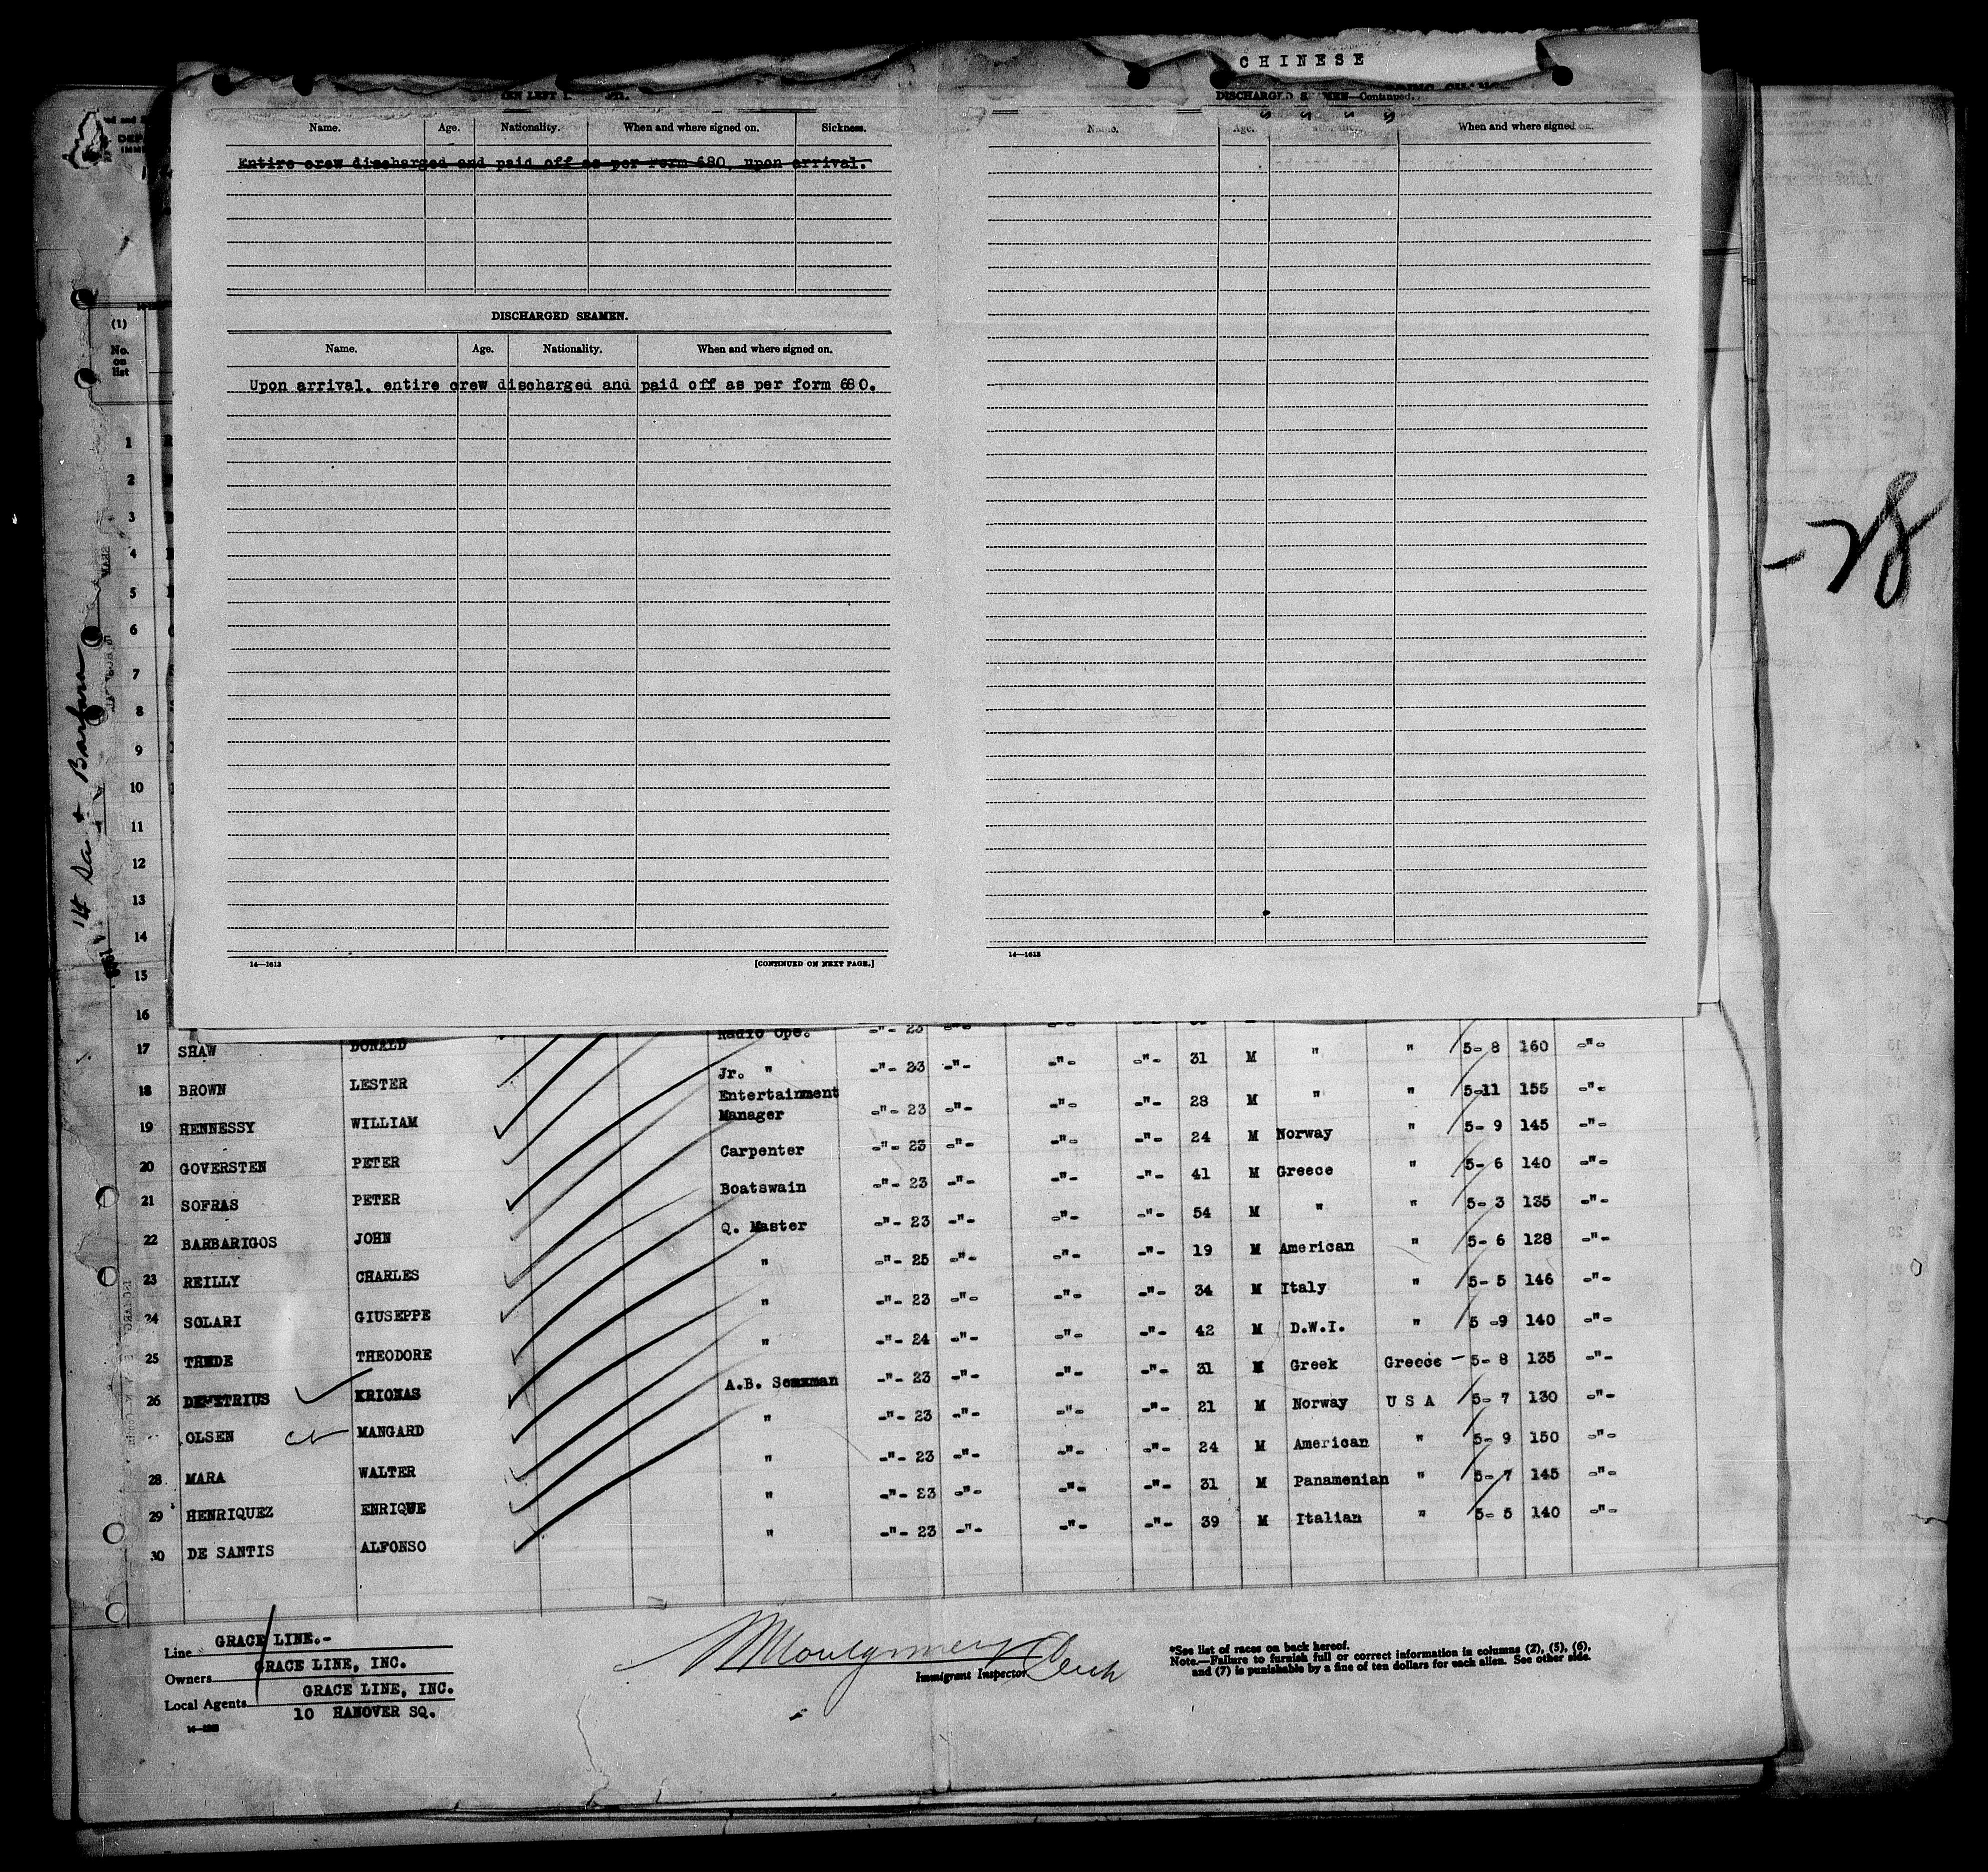 CHINESE
DISCHARGED SEAMEN—Continued.
Name. Age. Nationality. When and where signed on. Sickness.
Entire crew discharged and paid off as per Form 680, upon arrival.
DISCHARGED SEAMEN.
Name. Age. Nationality. When and where signed on.
Upon arrival. entire crew discharged and paid off as per form 680.
14—1613 [CONTINUED ON NEXT PAGE.]
Name. Age. When and where signed on.
14—1613
-28
(1)
No. on list
1
2
3
4
5
6
7
8
9
10
11
12
13
14
15
16
Radio Ope. -"- 23 -"- -"- -"-
17 SHAW DONALD Jr. " -"- 23 -"- -"- -"- 31 M " " 5- 8 160 -"-
18 BROWN LESTER Entertainment Manager -"- 23 -"- -"- -"- 28 M " " 5-11 155 -"-
19 HENNESSY WILLIAM Carpenter -"- 23 -"- -"- -"- 24 M Norway " 5- 9 145 -"-
20 GOVERSTEN PETER Boatswain -"- 23 -"- -"- -"- 41 M Greece " 5- 6 140 -"-
21 SOFRAS PETER Q. Master -"- 23 -"- -"- -"- 54 M " " 5- 3 135 -"-
22 BARBARIGOS JOHN " -"- 25 -"- -"- -"- 19 M American " 5- 6 128 -"-
23 REILLY CHARLES " -"- 23 -"- -"- -"- 34 M Italy " 5- 5 146 -"-
24 SOLARI GIUSEPPE " -"- 24 -"- -"- -"- 42 M D.W.I. " 5 -9 140 -"-
25 THEDE THEODORE A.B. Seaman -"- 23 -"- -"- -"- 31 M Greek Greece - 5- 8 135 -"-
26 DEMETRIUS KRIONAS " -"- 23 -"- -"- -"- 21 M Norway U S A 5- 7 130 -"-
OLSEN MANGARD " -"- 23 -"- -"- -"- 24 M American " 5- 9 150 -"-
28 MARA WALTER " -"- 23 -"- -"- -"- 31 M Panamenian " 5- 7 145 -"-
29 HENRIQUEZ ENRIQUE " -"- 23 -"- -"- -"- 39 M Italian " 5- 5 140 -"-
30 DE SANTIS ALFONSO
Line GRACE LINE.-
Owners GRACE LINE, INC.
Local Agents GRACE LINE, INC.
10 HANOVER SQ.
Immigrant Inspector
*See list of races on back hereof.
Note.—Failure to furnish full or correct information in columns (2), (5), (6),
and (7) is punishable by a fine of ten dollars for each alien. See other side.